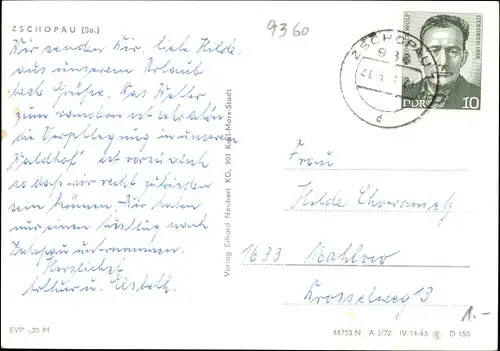 ZSCHOPAU (Sa.)
9360
Wir senden Dir, liebe Hilde,
aus unserem Urlaub
beste Grüße. Das Wetter
zum wandern ist
die Verpflegung in unserem
"Waldhof" ist vorzüglich
so daß wir recht zufrieden
sein können. Wir haben
nur einen Ausflug nach
Zschopau unternommen.
Herzlichst
Arthur u. Elsbeth.
EVP -,20 M
Verlag Erhard Neubert KG, 901 Karl-Marx-Stadt
ZSCHOPAU
936
d
DDR 10
Frau
Hilde
1633 Mahlow
Drosselweg 13
1.-
44733 N A 3/72 IV-14-45 D 150